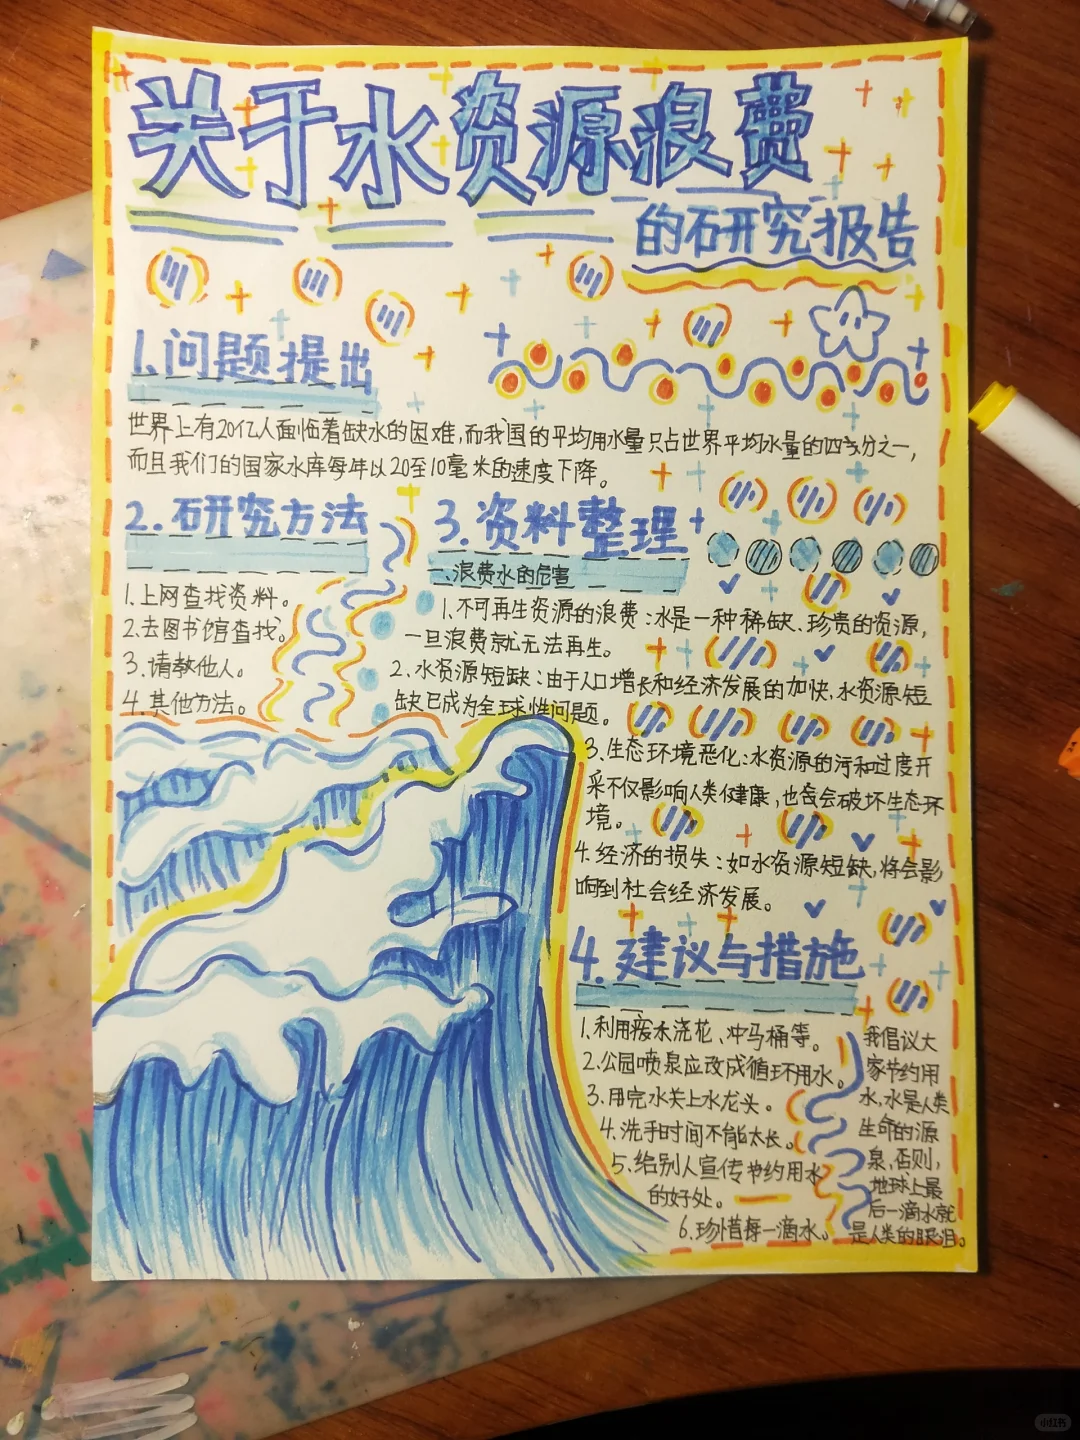 关于水资源浪费
的研究报告
1.问题提出
世界上有20亿人面临着缺水的困难,而我国的平均用水量只占世界平均水量的四分之一,
而且我们的国家水库每年以20至10毫米的速度下降。
2.研究方法
1.上网查找资料。
2.去图书馆查找。
3.请教他人。
4.其他方法。
3.资料整理
一.浪费水的危害
1.不可再生资源的浪费:水是一种稀缺、珍贵的资源,
一旦浪费就无法再生。
2.水资源短缺:由于人口增长和经济发展的加快,水资源短
缺已成为全球性问题。
3.生态环境恶化:水资源的污和过度开
采不仅影响人类健康,也会破坏生态环
境。
4.经济的损失:如水资源短缺,将会影
响到社会经济发展。
4.建议与措施
1.利用废水浇花、冲马桶等。
2.公园喷泉应改成循环用水。
3.用完水关上水龙头。
4.洗手时间不能太长。
5.给别人宣传节约用水
的好处。
6.珍惜每一滴水。
我倡议大
家节约用
水,水是人类
生命的源
泉,否则,
地球上最
后一滴水就
是人类的眼泪。
小红书